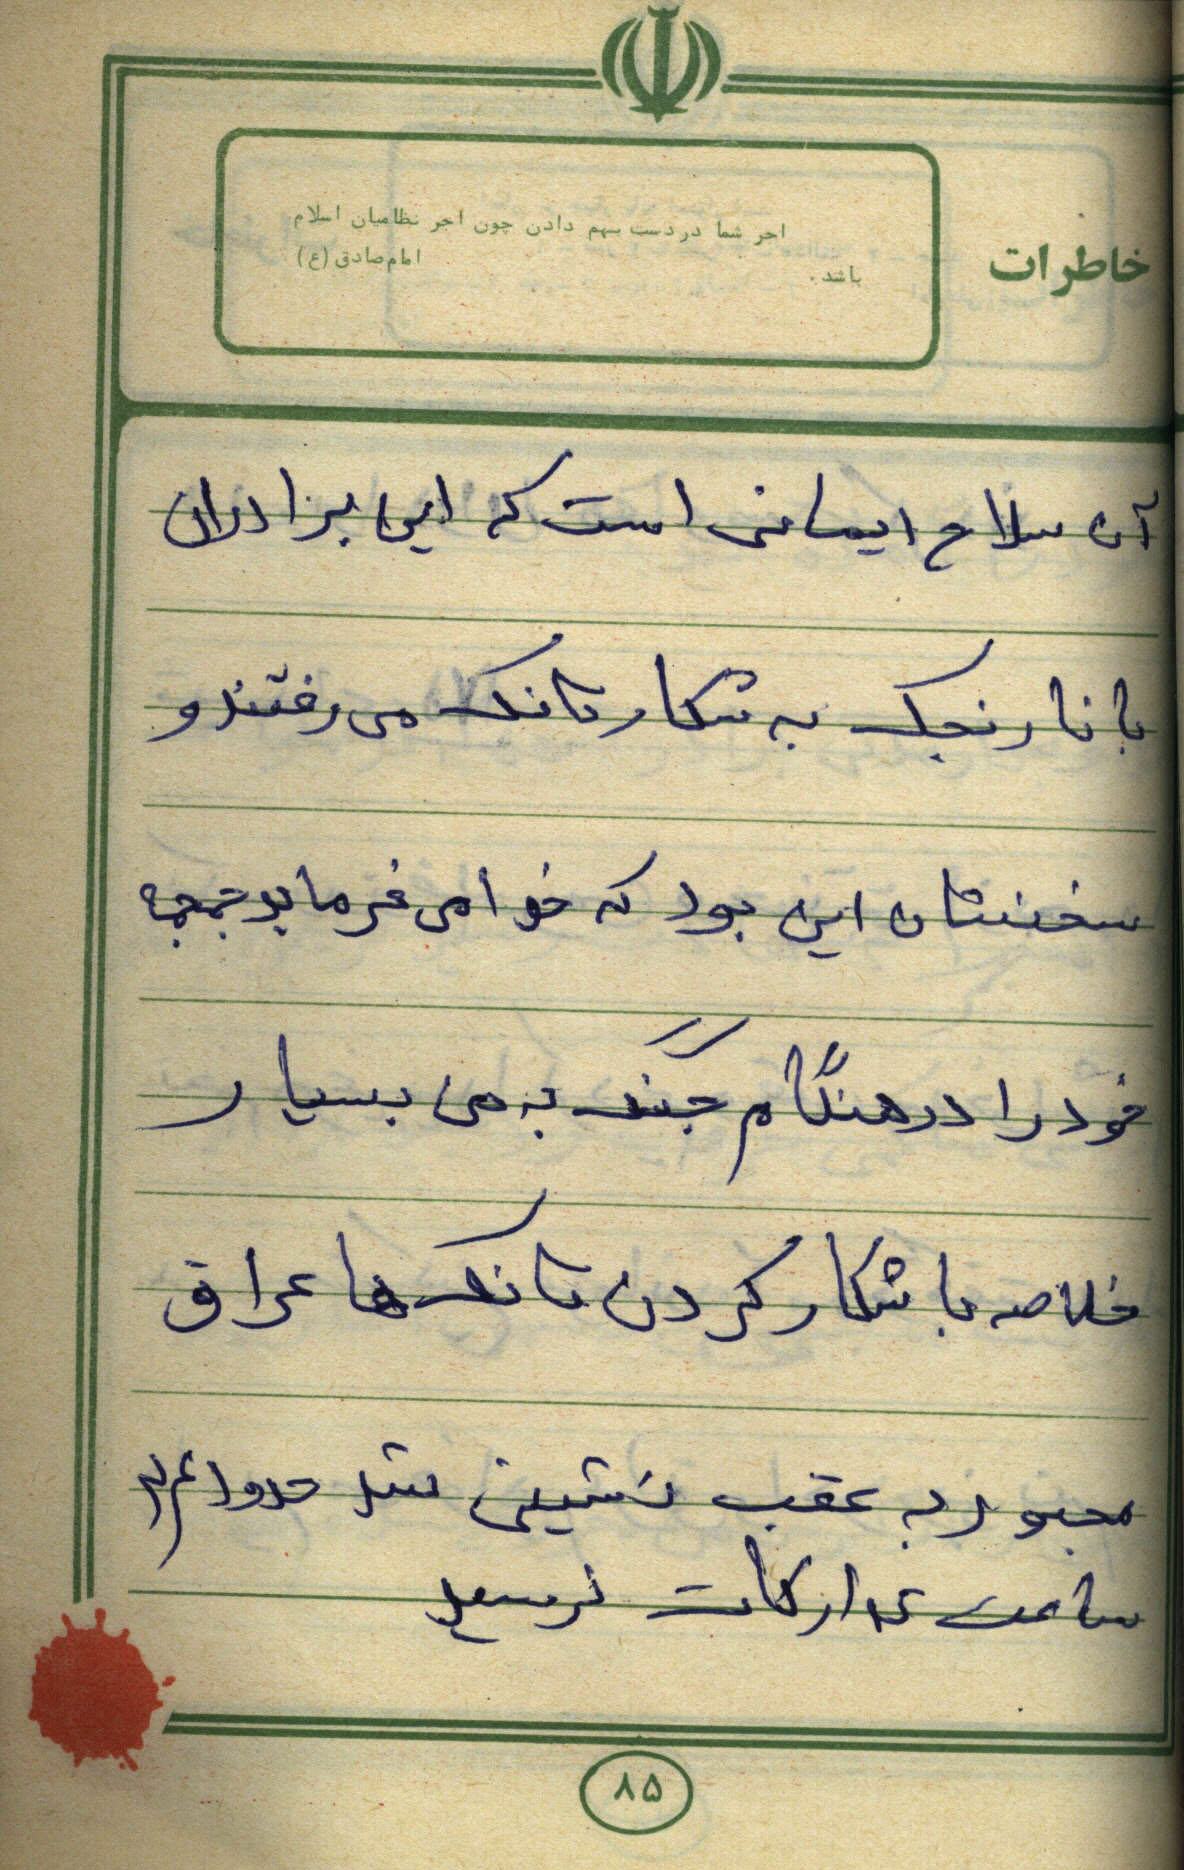 خاطرات
اجر شما در دست بهم دادن چون اجر نظامیان اسلام
باشد. امام صادق (ع)
آن سلاح ایمانی است که این برادران
با نارنجک به شکار تانک می رفتند و
سخنشان این بود که خدا می فرماید جمجمه
خود را در هنگام جنگ به من بسپار
خلاصه با شکار کردن تانک ها عراق
مجبور به عقب نشینی شد حدودا
ساعت تدارکات نرسید
۸۵